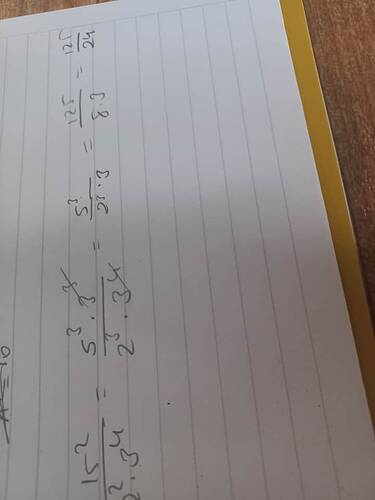 15² / 2² · 3⁴ = 5³ · 3³ / 2³ · 3⁴ = 5³ / 2³ · 3 = 125 / 8 · 3 = 125 / 24